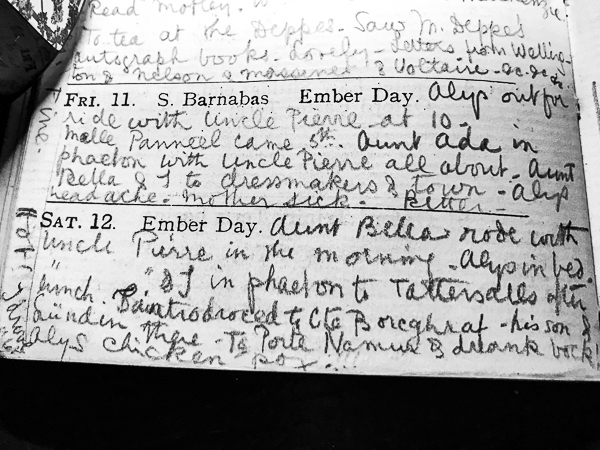 Read Motley.
To tea at the Deppes - Saw M. Deppe's
autograph books - lovely - Letters from Welling-
ton & Nelson & Massena & Voltaire -
FRI. 11. S. Barnabas Ember Day. Alys out for
ride with Uncle Pierre at 10 -
Melle Panneel came 5th. Aunt Ada in
phaeton with Uncle Pierre all about - Aunt
Bella & I to dressmakers & town - Alys
headache - Mother sick - Better -
SAT. 12. Ember Day. Aunt Bella rode with
Uncle Pierre in the morning - Alys in bed.
" " & I in phaeton to Tattersalls after
lunch. introdroced to Cte Borcghraf - his son &
there - To Porte Namur & drank bock!
Alys chicken pox ...